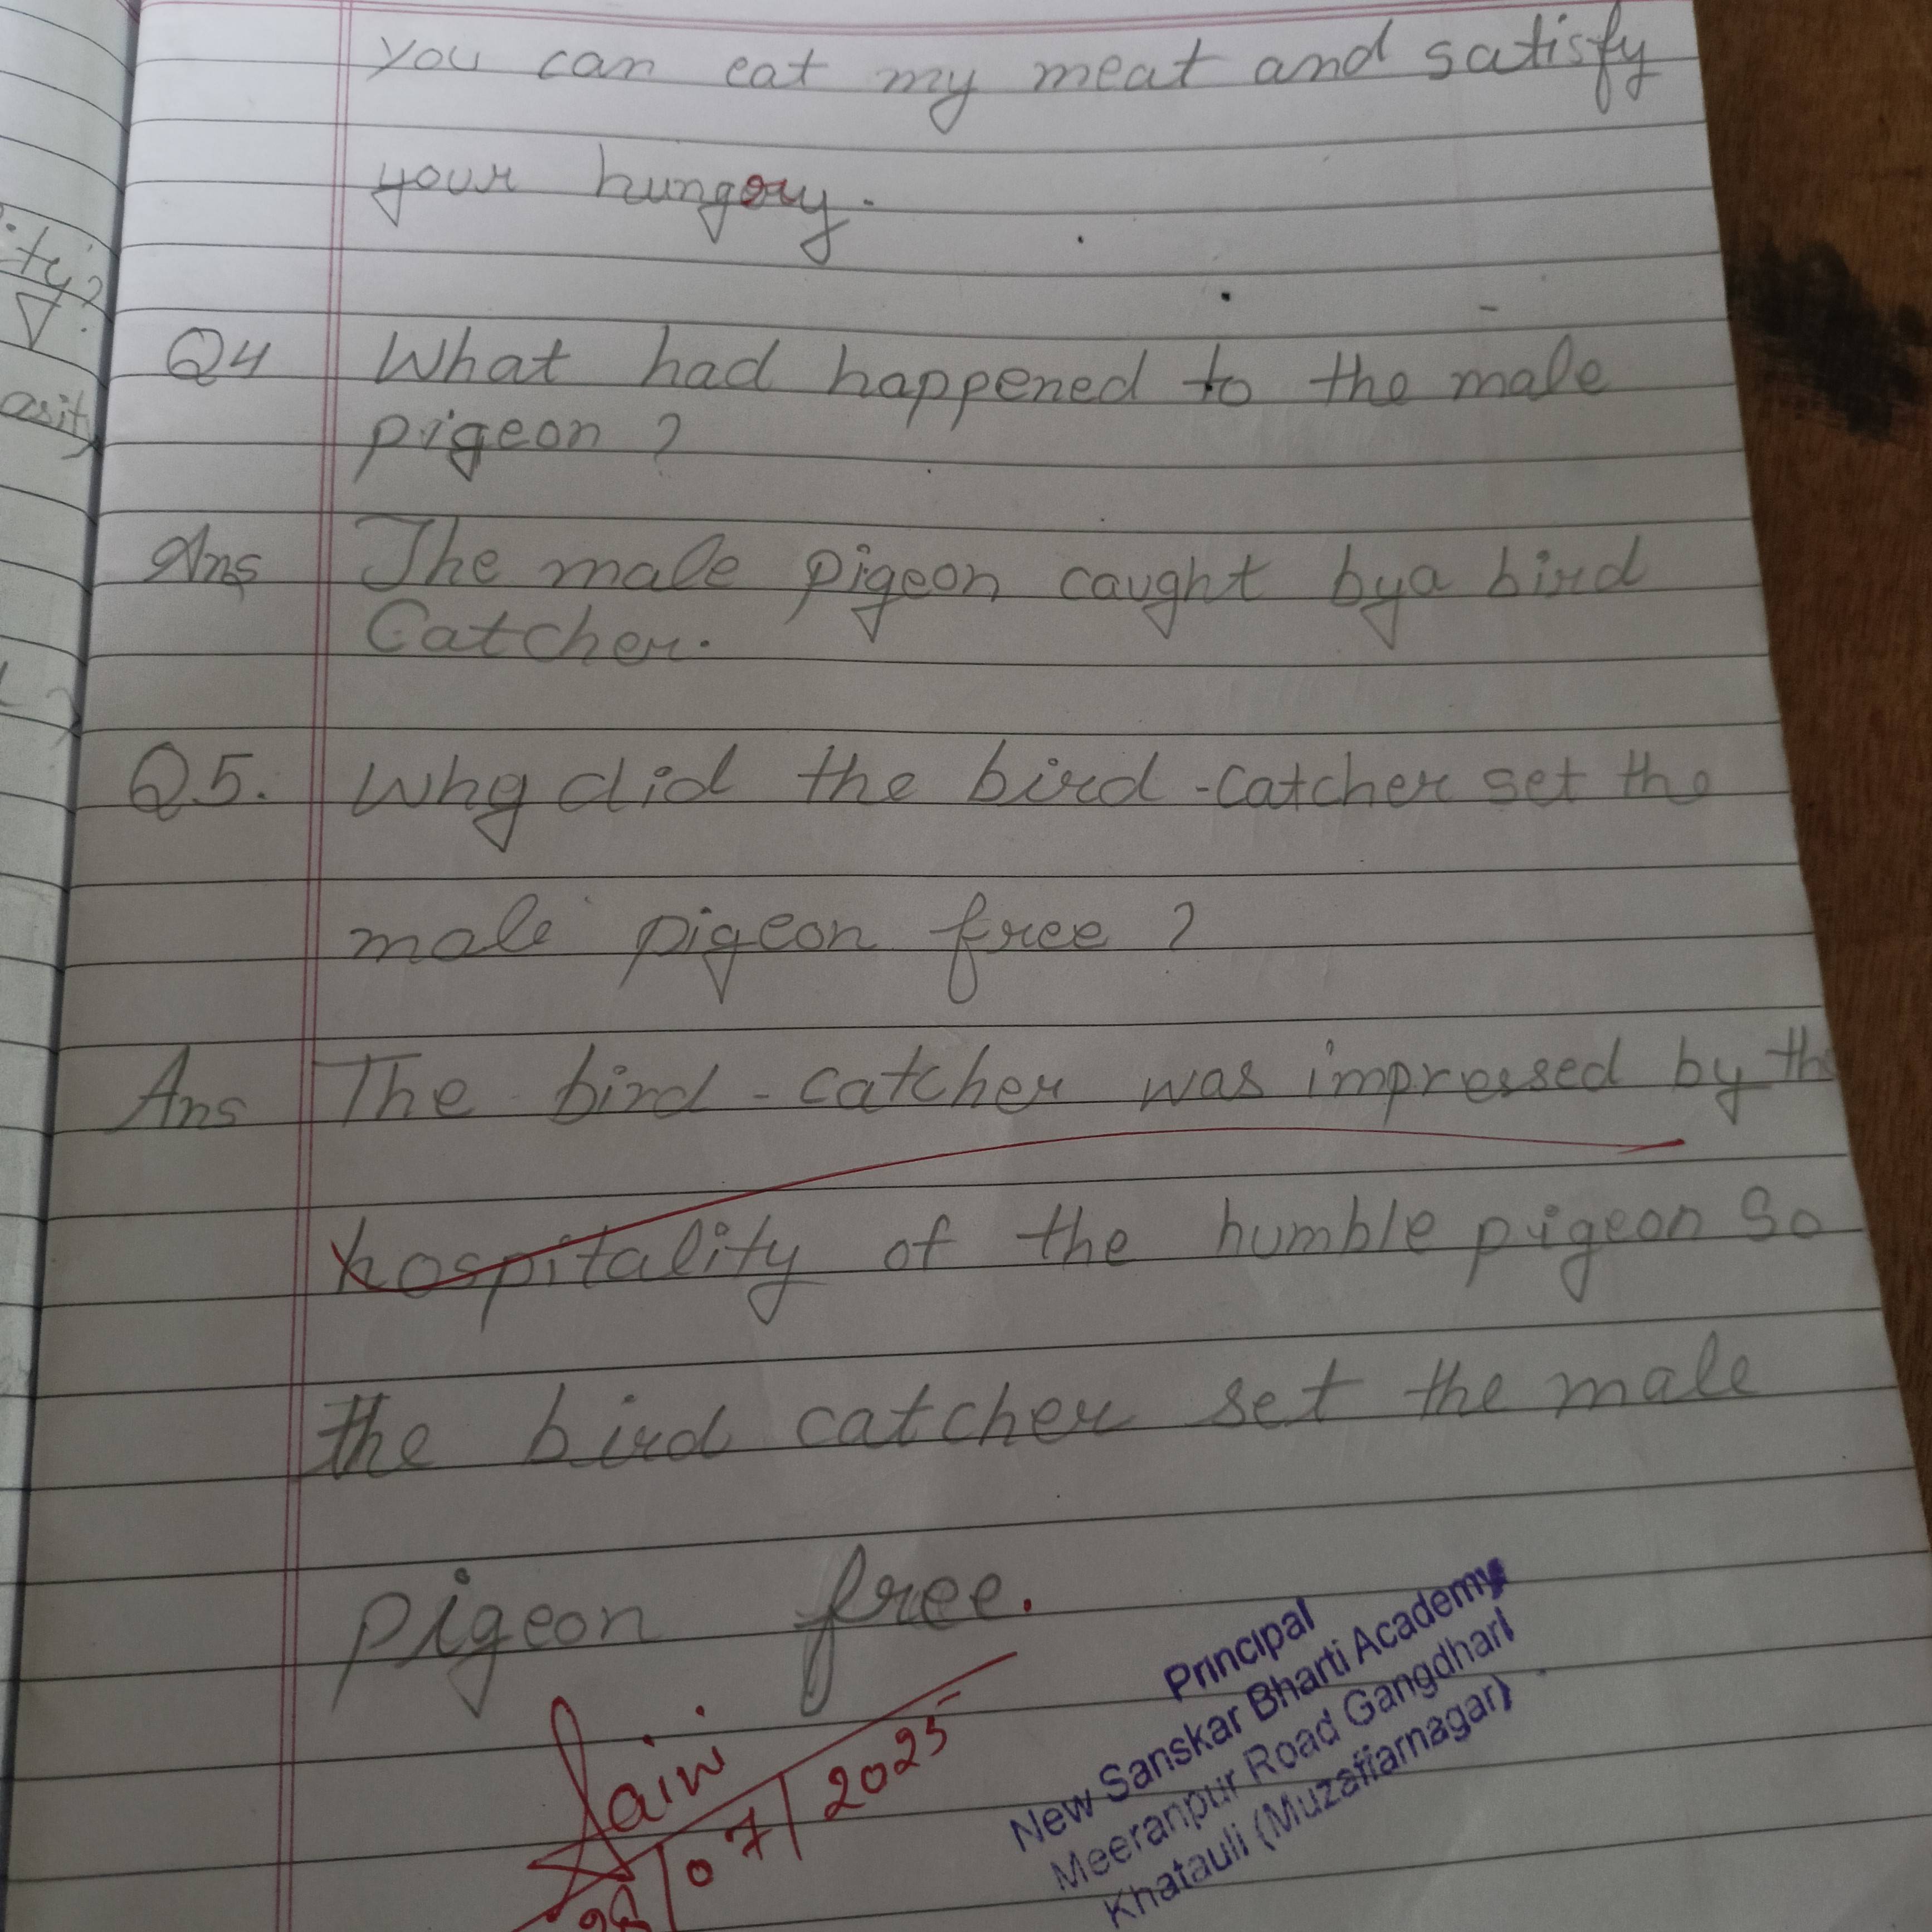 you can eat my meat and satisfy
your hungory.
Q4 What had happened to the male
pigeon ?
Ans The male pigeon caught by a bird
Catcher.
Q5. Why did the bird-catcher set the
male pigeon free ?
Ans The bird-catcher was impressed by the
hospitality of the humble pigeon So
the bird catcher set the male
pigeon free.
07/2025
Principal
New Sanskar Bharti Academy
Meeranpur Road Gangdhari
Khatauli (Muzaffarnagar)